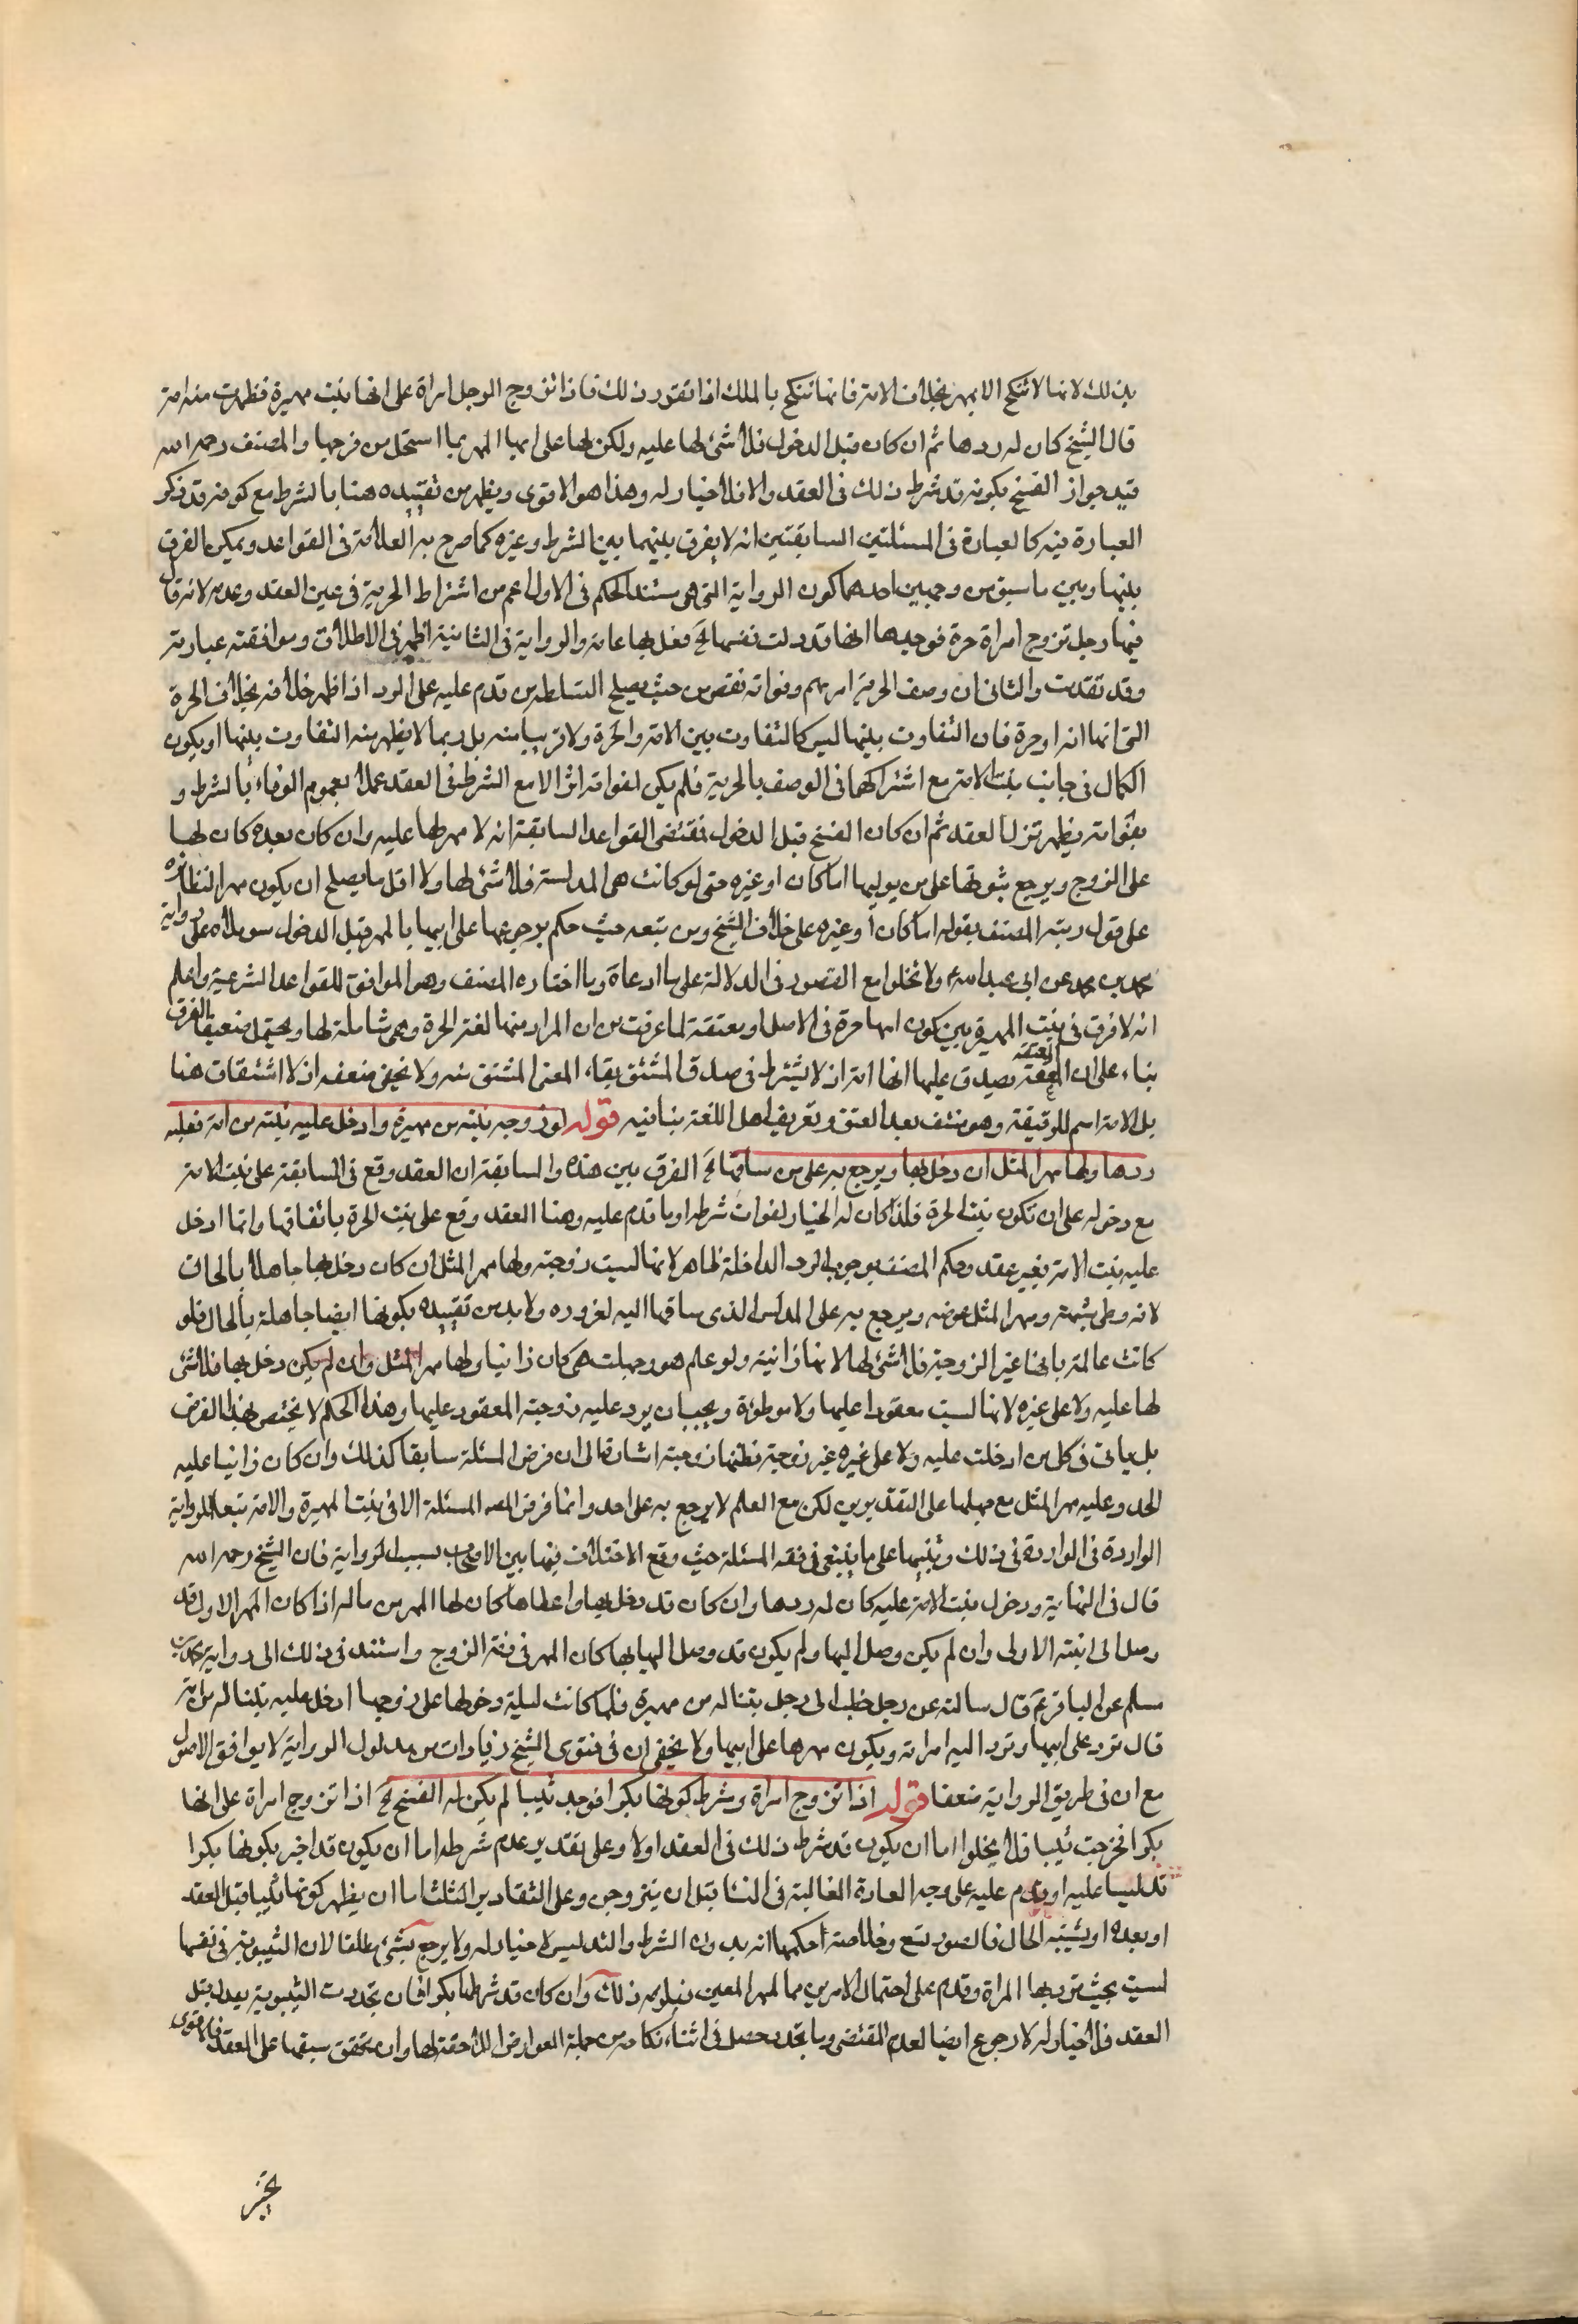 بذلك لانها لا تنكح الا بمهر بخلاف الامة فانها تنكح بالملك اذا تقرر ذلك فاذا تزوج الرجل امراة على انها بنت مهيرة فظهرت بنت امة
قال الشيخ كان له ردها ثم ان كان قبل الدخول فلا شئ لها عليه ولكن لها على ابيها المهر بما استحل من فرجها والمصنف رحمه الله
قيد جواز الفسخ بكونه قد شرط ذلك في العقد والا فلا خيار له وهذا هو الاقوى ويظهر من تقييده هنا بالشرط مع كونه قد ذكر
العبارة فيه كالعبارة في المسئلتين السابقتين انه لا يفرق بينهما بين الشرط وغيره كما صرح به العلامة في القواعد ويمكن الفرق
بينها وبين ما سبق من وجهين احدهما كون الرواية التي هي مستند الحكم في الاول اعم من اشتراط الحرية في عين العقد وعدمه لانه قال
فيها رجل تزوج امراة حرة فوجدها انها قد دلست نفسها الخ فعلى بها عامة والرواية في الثانية اظهر في الاطلاق وموافقته عبارته
وقد تقدمت والثاني ان وصف الحرية امر مهم وفواته نقص من حيث يصلح لتسلطه من قدم عليه على الرد اذا ظهر خلافه بخلاف الحرة
التي انها امة او حرة فان التفاوت بينهما ليس كالتفاوت بين الامة والحرة ولا قريبا منه بل ربما لا يظهر منه التفاوت بينهما او يكون
الكمال في جانب بنت الامة مع اشتراكهما في الوصف بالحرية فلم يكن لفواته اثر الا مع الشرط في العقد عملا بعموم الوفاء بالشرط و
بفواته يظهر تزلزل العقد ثم ان كان الفسخ قبل الدخول فمقتضى القواعد السابقة انه لا مهر لها عليه وان كان بعده كان لها
على الزوج ويرجع بثبوتها على من يوليها اما كان او غيره حتى لو كانت هي المدلسة فلا شئ لها ولا اقل ما يصلح ان يكون مهرا لنظائره
على قول ونبه المصنف بقوله ابا كان او غيره على خلاف الشيخ ومن تبعه حيث حكم برجوعها على ابيها بالمهر قبل الدخول سوى دلالة على رواية
محمد بن مسلم عن ابي عبد الله ولا تخلو مع القصور في الدلالة على ما ادعاه وما اختاره المصنف وهو الموافق للقواعد الشرعية واعلم
انه لا فرق في بنت المهيرة بين كون امها حرة في الاصل او معتقة لما عرفت من ان المراد منها لغة الحرة وهي شاملة لها ويحتمل ضعيفا الفرق
بناء على ان المعتقة يصدق عليها انها امة اذ لا يشترط في صدق المشتق بقاء المعنى المشتق منه ولا يخفى ضعفه اذ لا اشتقاق هنا
بل الامة اسم للرقيقة وهو منتف بعد العتق وتعريف اهل اللغة ينافيه قوله لو زوجه بنته من مهيرة وادخل عليه بنته من امة فعليه
ردها ولها مهر المثل ان دخل بها ويرجع به على من ساقها الخ الفرق بين هذه والسابقة ان العقد وقع في السابقة على بنت الامة
مع دخوله على ان تكون بنت الحرة فلذا كان له الخيار لفوات شرطه او ما قدم عليه وهنا العقد وقع على بنت الحرة باتفاقهما وانما ادخل
عليه بنت الامة بغير عقد وحكم المصنف بوجوب الرد الداخلة ظاهر لانها ليست زوجته ولها مهر المثل ان كان دخل بها جاهلا بالحال
لانه وطئ شبهة ومهر المثل عوضه ويرجع به على المدلس الذي ساقها اليه لغروره ولا بد من تقييده بكونها ايضا جاهلة بالحال فلو
كانت عالمة بانها غير الزوجة فلا شئ لها لانها زانية ولو علم هو وجهلت هي كان زانيا ولها مهر المثل وان لم يكن دخل بها فلا شئ
لها عليه ولا على غيره لانها ليست معقودا عليها ولا موطوءة ويجب ان يرد عليه زوجته المعقود عليها وهذا الحكم لا يختص بهذا الفرض
بل ياتي في كل من ادخلت عليه ولا على غيره غير زوجته فظنها زوجته اشارة الى ان فرض المسئلة سابقا كذلك وان كان زانيا عليه
الحد وعليه مهر المثل مع جهلها على التقديرين لكن مع العلم لا يرجع به على احد وانما فرض المصنف المسئلة الا في بنت المهيرة والامة تبعا للرواية
الواردة في الواردة في ذلك وتنبيها على ما ينبغي في فقه المسئلة حيث وقع الاختلاف فيها بين الاصحاب بسبب الرواية فان الشيخ رحمه الله
قال في النهاية ودخول بنت الامة عليه كان له ردها وان كان قد دخل بها واعطاها كان لها المهر من ماله اذا كان المهر الاول قد
وصل الى ابنته الاولى وان لم يكن وصل اليها ولم يكون قد وصل اليها بها كان المهر في ذمة الزوج واستند في ذلك الى رواية محمد بن
مسلم عن الباقر ع قال سالته عن رجل خطب الى رجل بنتا له من مهيرة فلما كانت ليلة دخولها على زوجها ادخل عليه بنتا له من امة
قال ترد على ابيها وترد اليه امراته ويكون مهرها على ابيها ولا يخفى ان في فتوى الشيخ زيادات من مدلول الرواية لا يوافق الاصول
مع ان في طريق الرواية ضعفا قوله اذا تزوج امراة وشرط كونها بكرا فوجد ثيبا لم يكن له الفسخ الخ اذا تزوج امراة على انها
بكر فخرجت ثيبا فلا يخلو اما ان يكون قد شرط ذلك في العقد او لا وعلى تقدير عدم شرطه اما ان يكون قد اخبر بكونها بكرا
تدليسا عليه او يقدم عليه على وجه العادة الغالبة في النسا قبل ان يتزوجن وعلى التقادير الثلث اما ان يظهر كونها ثيبا قبل العقد
او بعده او يشتبه الحال فالصور تسع وخلاصة احكامها انه بدون الشرط والتدليس لا خيار له ولا يرجع بشئ مطلقا لان الثيبوبة في نفسها
ليست بحيث ترد بها المراة وقدم على احتمال الامرين بما المهر المعين فيلزمه ذلك وان كان قد شرطها بكرا فان تجددت الثيبوبة بعد قبل
العقد فلا خيار له لا رجوع ايضا لعدم المقتضي وما تجدد حصل في اثناء نكاحه من جملة العوارض اللاحقة لها وان تحقق سبقها على العقد فالاقوى
تخير